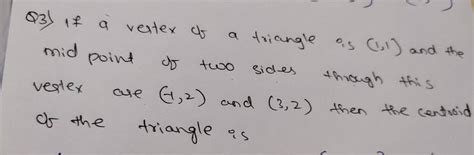 Q3) If a vertex of a triangle is (1,1) and the
mid point of two sides through this
vertex are (-1,2) and (3,2) then the centroid
of the triangle is